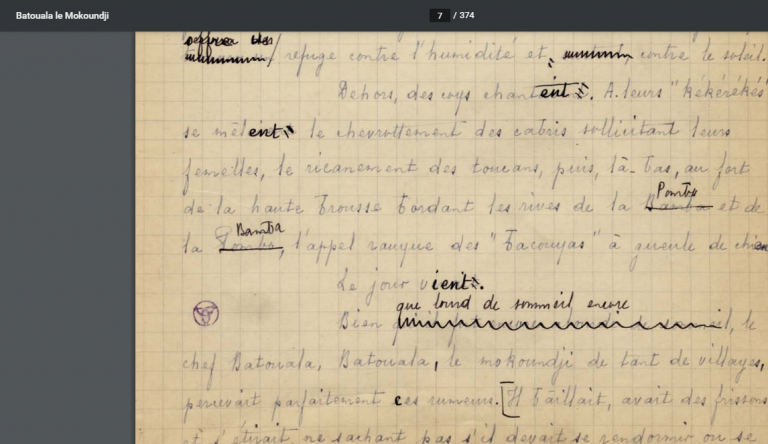 Batouala le Mokoundji
7 / 374
refuge contre l'humidité et, contre le soleil.
Dehors, des coqs chantent. A leurs "kékérékés"
se mêlent le chevrottement des cabris sollicitant leurs
femelles, le ricanement des toucans, puis, là-bas, au fort
Pombo
de la haute brousse bordant les rives de la Bamba et de
Bamba
la Pombo, l'appel rauque des "bacouyas" à gueule de chien
Le jour vient.
que lourd de sommeil encore
Bien , le
chef Batouala, Batouala, le mokoundji de tant de villages,
percevait parfaitement ces rumeurs. [Il bâillait, avait des frissons
et s'étirait ne sachant pas s'il devait se rendormir ou se